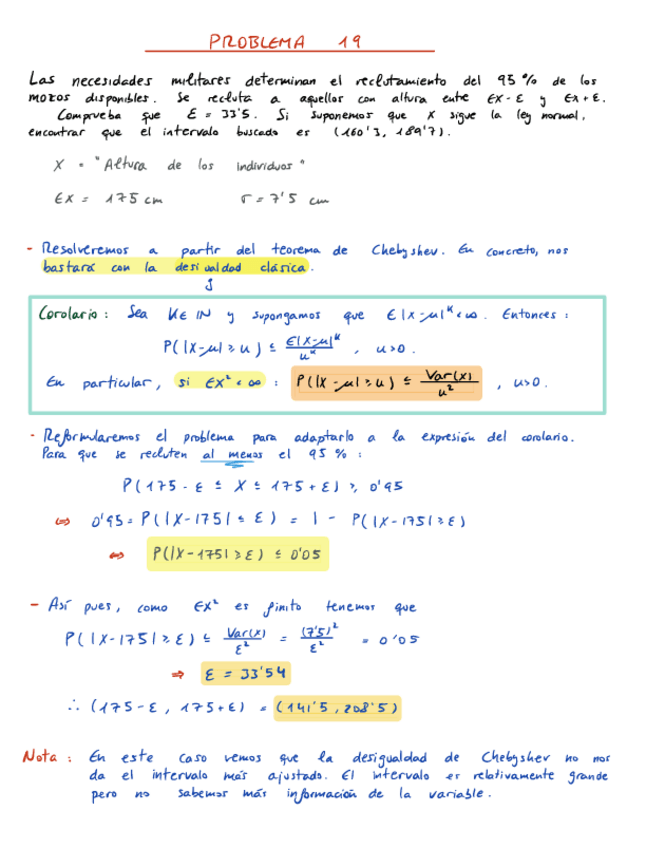 PROBLEMA 19
Las necesidades militares determinan el reclutamiento del 95% de los
mozos disponibles. Se recluta a aquellos con altura entre EX-ε y EX+ε.
Comprueba que ε = 33'5. Si suponemos que X sigue la ley normal,
encontrar que el intervalo buscado es (160'3, 189'7).
X = "Altura de los individuos"
EX = 175 cm σ = 7'5 cm
- Resolveremos a partir del teorema de Chebyshev. En concreto, nos
bastará con la desigualdad clásica.
Corolario: Sea K∈IN y supongamos que E|X-μ|^K < ∞. Entonces:
P(|X-μ| ≥ u) ≤ E|X-μ|^K / u^K , u>0.
En particular, si EX² < ∞ : P(|X-μ| ≥ u) ≤ Var(X) / u² , u>0.
- Reformularemos el problema para adaptarlo a la expresión del corolario.
Para que se recluten al menos el 95%:
P(175-ε ≤ X ≤ 175+ε) ≥ 0'95
⇔ 0'95 = P(|X-175| ≤ ε) = 1 - P(|X-175| ≥ ε)
⇔ P(|X-175| ≥ ε) ≤ 0'05
- Así pues, como EX² es finito tenemos que
P(|X-175| ≥ ε) ≤ Var(X) / ε² = (7'5)² / ε² = 0'05
⇒ ε = 33'54
∴ (175-ε, 175+ε) = (141'5, 208'5)
Nota: En este caso vemos que la desigualdad de Chebyshev no nos
da el intervalo más ajustado. El intervalo es relativamente grande
pero no sabemos más información de la variable.